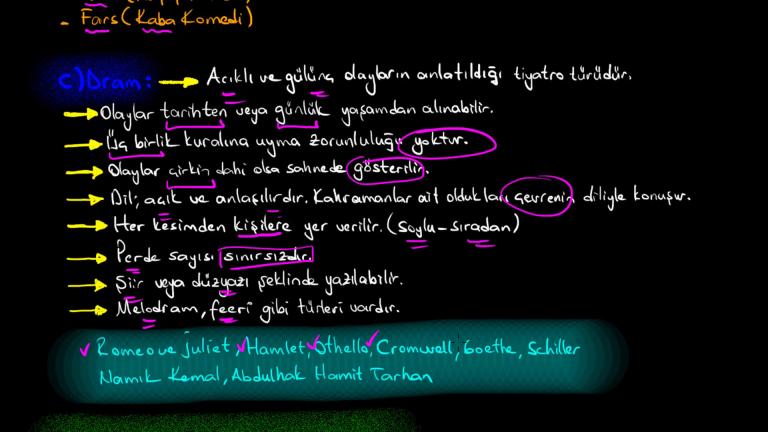 - Fars (Kaba Komedi)
c) Dram: → Acıklı ve gülünç olayların anlatıldığı tiyatro türüdür.
→ Olaylar tarihten veya günlük yaşamdan alınabilir.
→ Üç birlik kuralına uyma zorunluluğu yoktur.
→ Olaylar çirkin dahi olsa sahnede gösterilir.
→ Dil; açık ve anlaşılırdır. Kahramanlar ait oldukları çevrenin diliyle konuşur.
→ Her kesimden kişilere yer verilir. (soylu-sıradan)
→ Perde sayısı sınırsızdır.
→ Şiir veya düzyazı şeklinde yazılabilir.
→ Melodram, feeri gibi türleri vardır.
✓ Romeo ve Juliet, ✓Hamlet, ✓Othello, ✓Cromwell, Goethe, Schiller
Namık Kemal, Abdulhak Hamit Tarhan